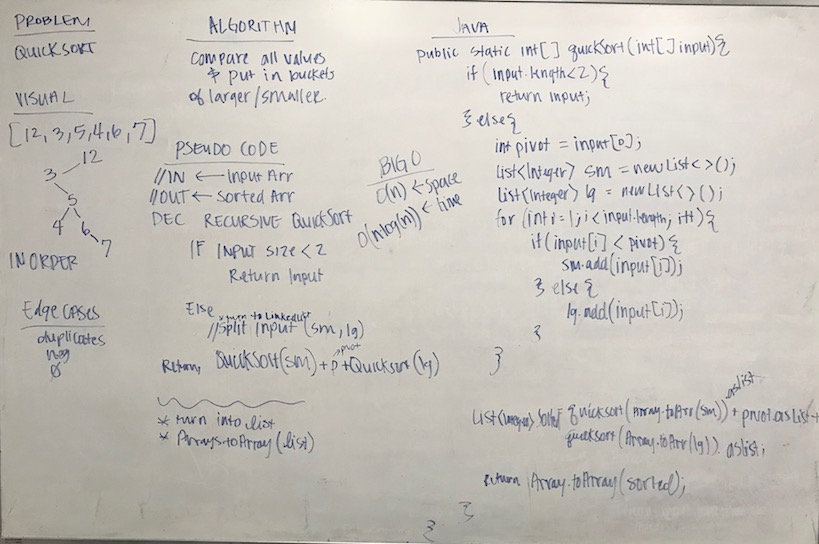 PROBLEM
QUICKSORT
VISUAL
[12, 3, 5, 4, 6, 7]
12
3
5
4 6
7
IN ORDER
Edge cases
duplicates
neg
0
ALGORITHM
Compare all values
& put in buckets
of larger/smaller.
PSEUDO CODE
//IN ← Input Arr
//OUT ← Sorted Arr
DEC RECURSIVE QuickSort
IF INPUT size < 2
Return Input
Else
turn to LinkedList
//Split Input (sm, lg)
pivot
Return QuickSort(sm) + p + Quicksort(lg)
* turn into list
* Arrays.toArray(list)
BIG O
O(n) ← space
O(n log(n)) ← time
JAVA
public static int[] quickSort(int[] input){
if (input.length < 2){
return input;
} else {
int pivot = input[0];
List<Integer> sm = new List<>();
List<Integer> lg = new List<>();
for (int i = 1; i < input.length; i++) {
if (input[i] < pivot) {
sm.add(input[i]);
} else {
lg.add(input[i]);
}
}
List<Integer> sorted quicksort(Array.toArr(sm)).aslist + pivot.asList +
quicksort(Array.toArr(lg)).aslist;
return Array.toArray(sorted);
}
}